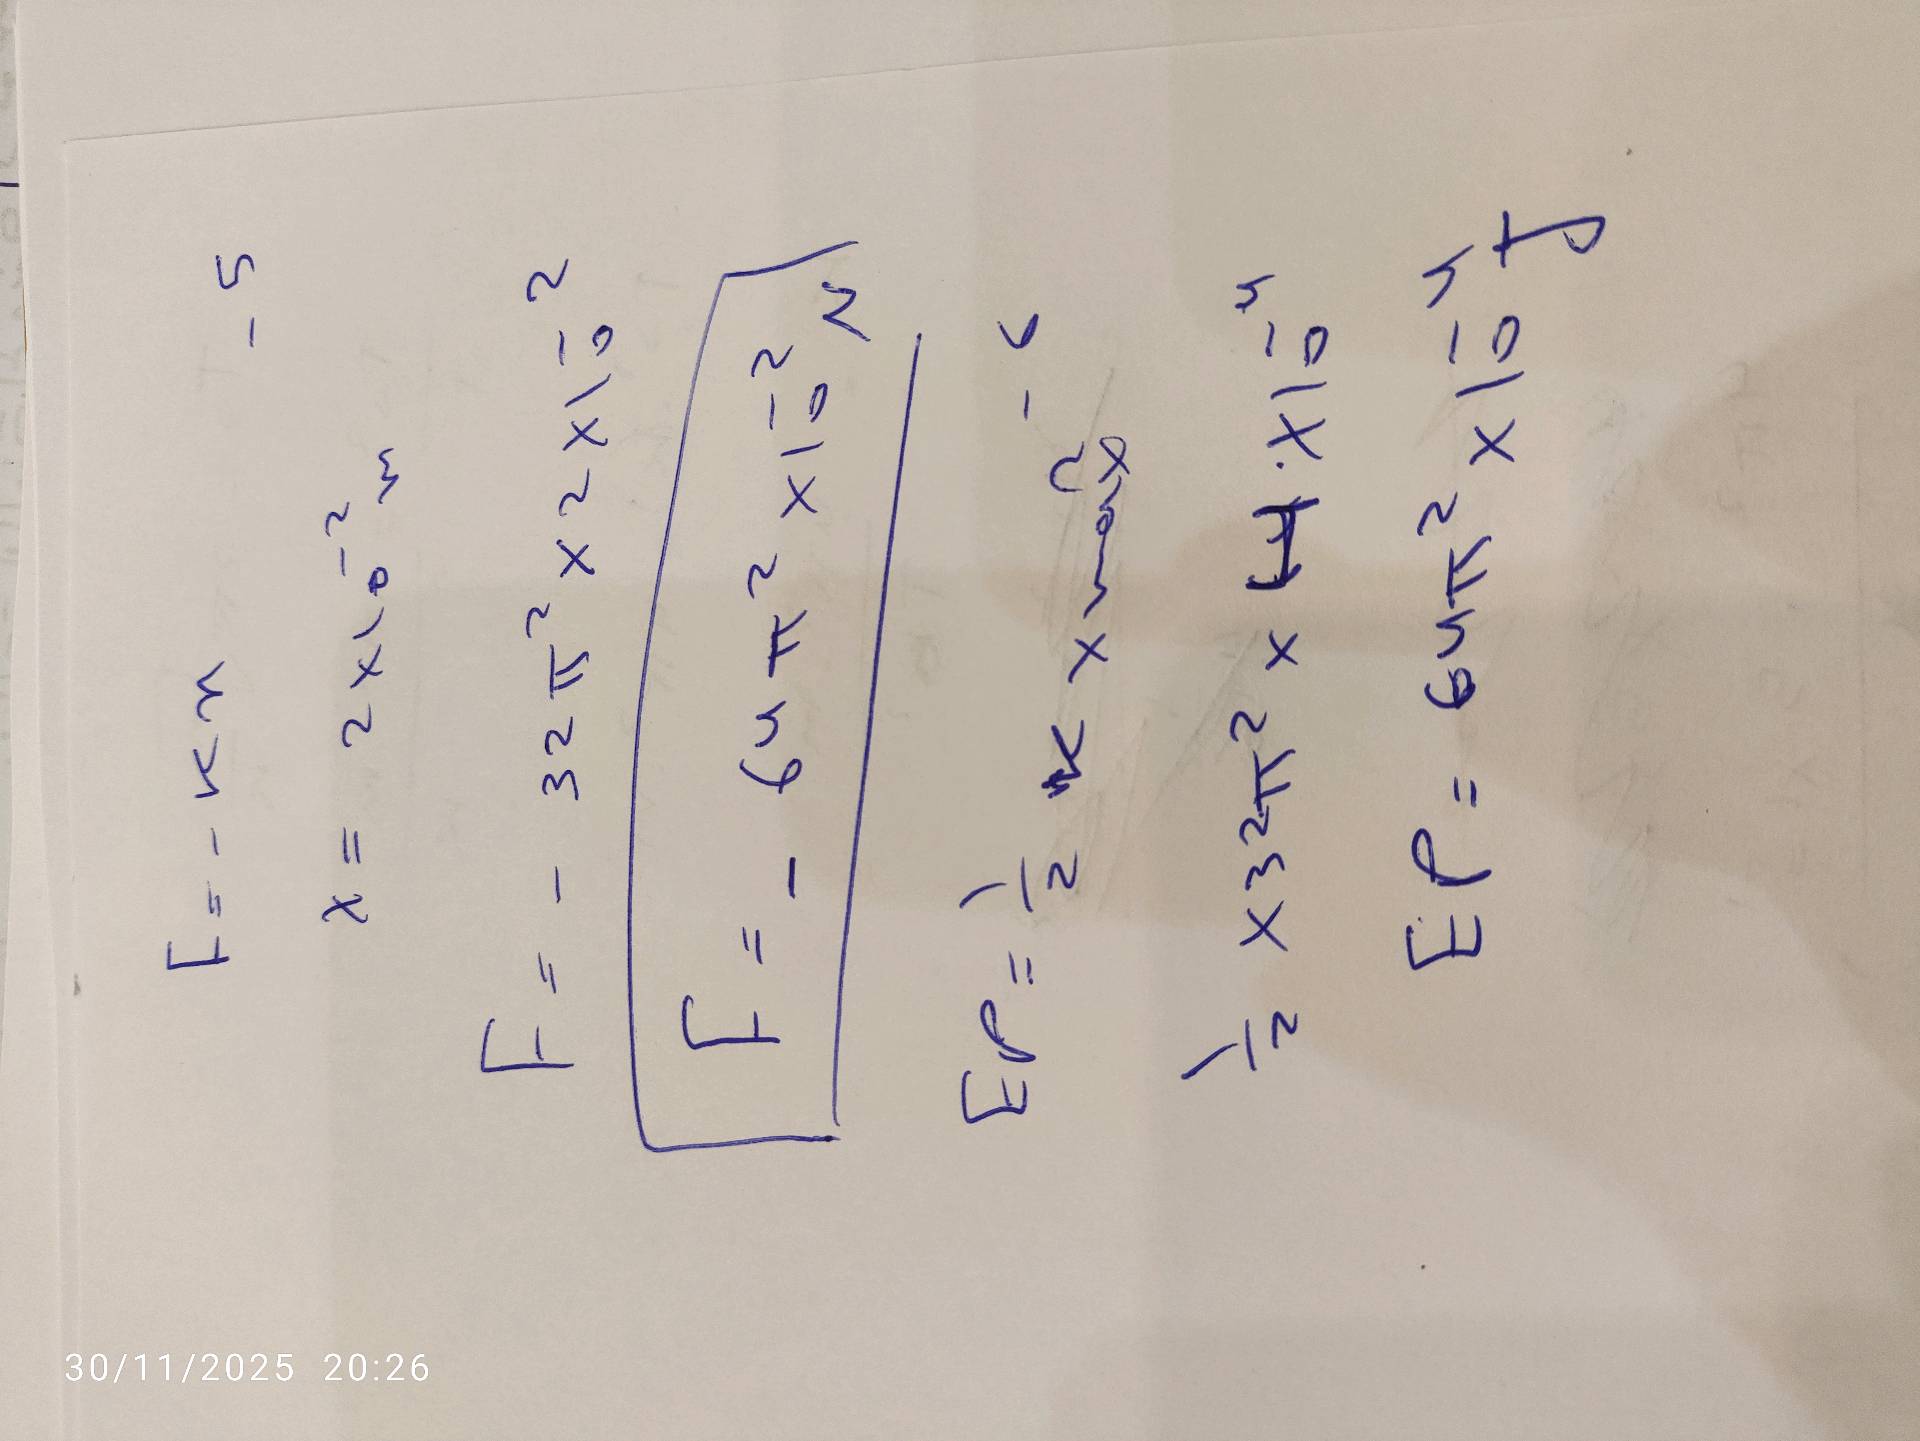 F = - Kx - 5
x = 2x10⁻² m
F = - 32π² x 2 x 10⁻²
F = - 64π² x 10⁻² N
EP = 1/2 K x xmax² - 6
1/2 x 32π² x 4 . x 10⁻⁴
EP = 64π² x 10⁻⁴ J
30/11/2025 20:26